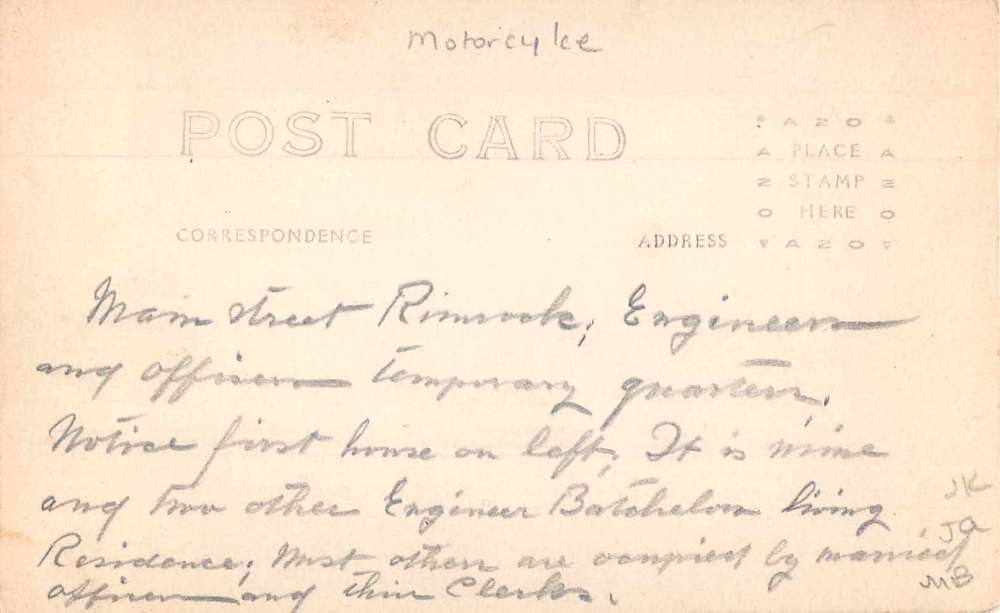 Motorcykle
POST CARD
A Z O
A PLACE A
Z STAMP Z
O HERE O
A Z O
CORRESPONDENCE
ADDRESS
Main street Rimrock, Engineers
and officers temporary quarters.
Notice first house on left, It is mine
and two other Engineer Batchelors living
Residence, Most others are occupied by married
officers and thier Clerks.
JK
JA
MB